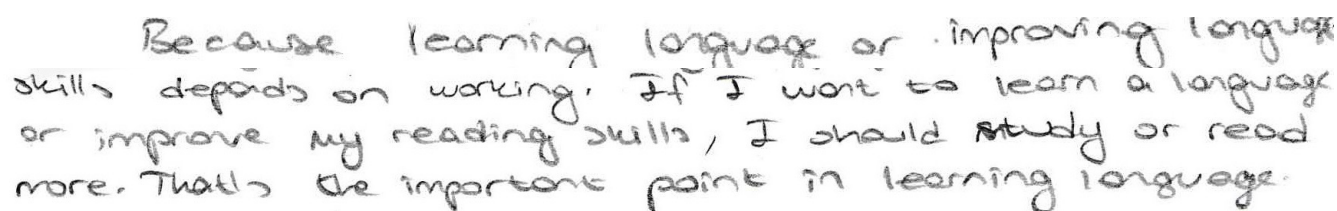 Because learning language or improving language
skills depends on working. If I want to learn a language
or improve my reading skills, I should study or read
more. That's the important point in learning language.